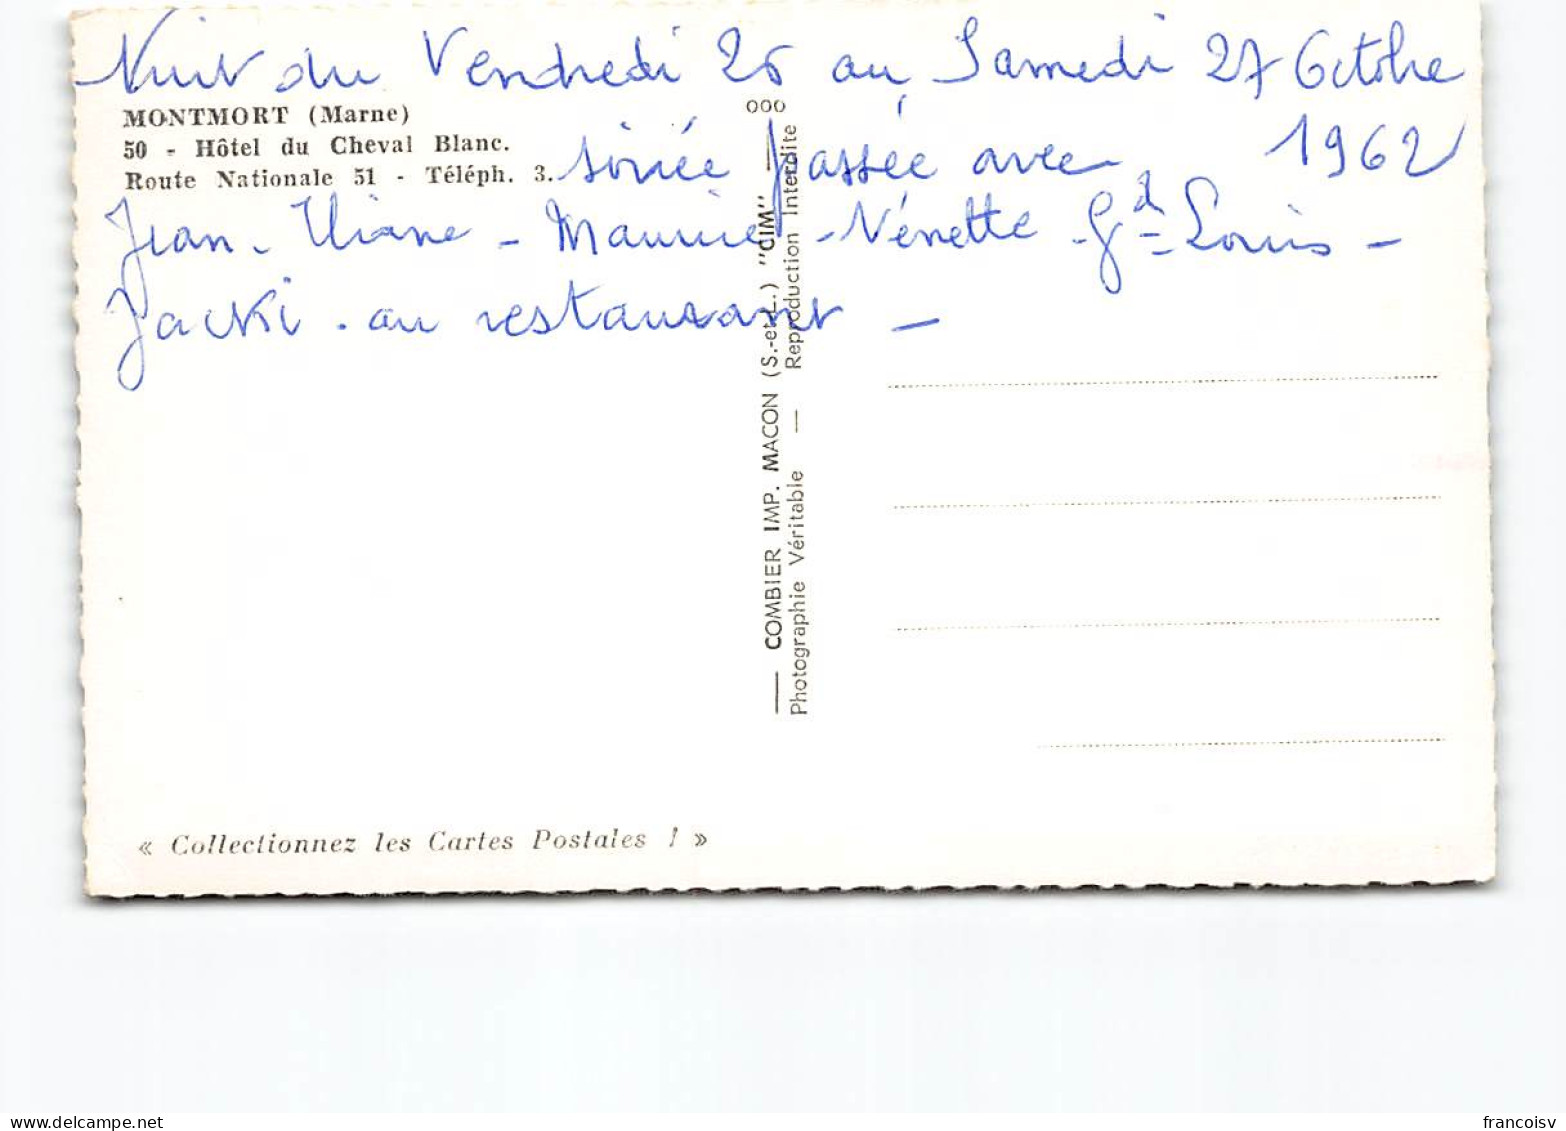 Nuit du Vendredi 26 au Samedi 27 Octobre
MONTMORT (Marne)
50 - Hôtel du Cheval Blanc.
Route Nationale 51 - Téléph. 3.
1962
soirée passée avec
Jean - Eliane - Maurice - Nénette - Gd Louis -
Jacki - au restaurant -
ooo
— COMBIER IMP. MACON (S.-et-L.) "CIM" —
Photographie Véritable — Reproduction Interdite
« Collectionnez les Cartes Postales ! »
delcampe.net
francoisv